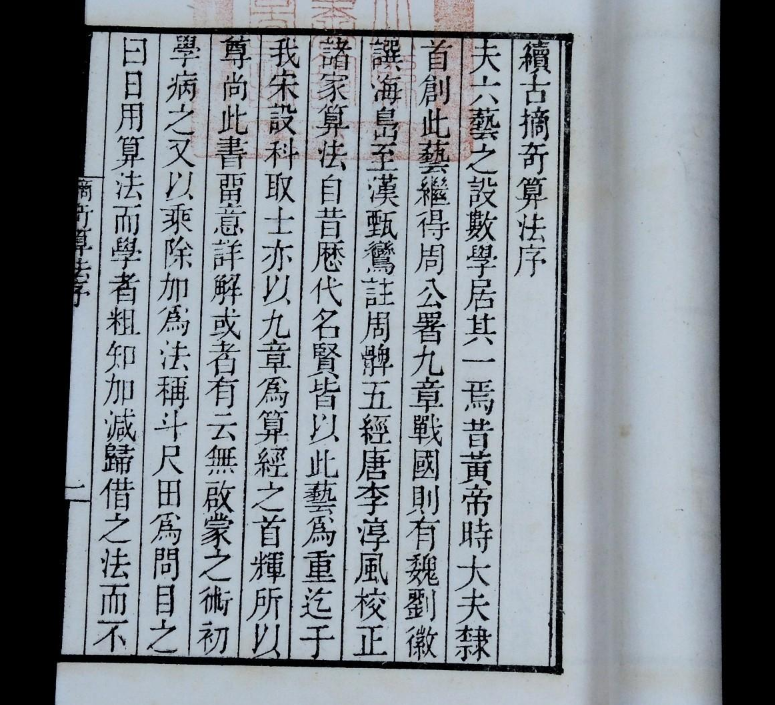 續古摘奇算法序
夫六藝之設數學居其一焉昔黃帝時大夫隸
首創此藝繼得周公署九章戰國則有魏劉徽
譔海島至漢甄鸞註周髀五經唐李淳風校正
諸家算法自昔歷代名賢皆以此藝爲重迄于
我宋設科取士亦以九章爲算經之首輝所以
尊尚此書畱意詳解或者有云無啟蒙之術初
學病之又以乘除加爲法稱斗尺田爲問目之
曰日用算法而學者粗知加減歸借之法而不
摘奇算法序
一